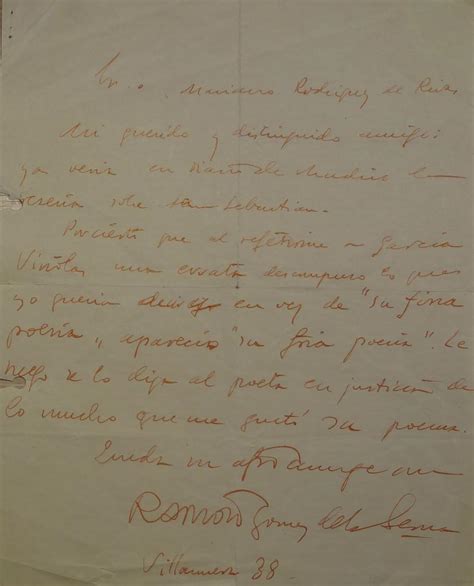 Sr. D. Mariano Rodriguez de Rivas
Mi querido y distinguido amigo:
ya vería en Diario de Madrid la
reseña sobre San Sebastian.
Por cierto que al referirme a García
Viñolas una errata descompuso lo que
yo queria decir en vez de "su fina
poesía" apareció "su fría poesía". Le
ruego se lo diga al poeta en justicia de
lo mucho que me gustó su poema.
Queda su afmo amigo
Ramón Gomez de la Serna
Villanueva 38